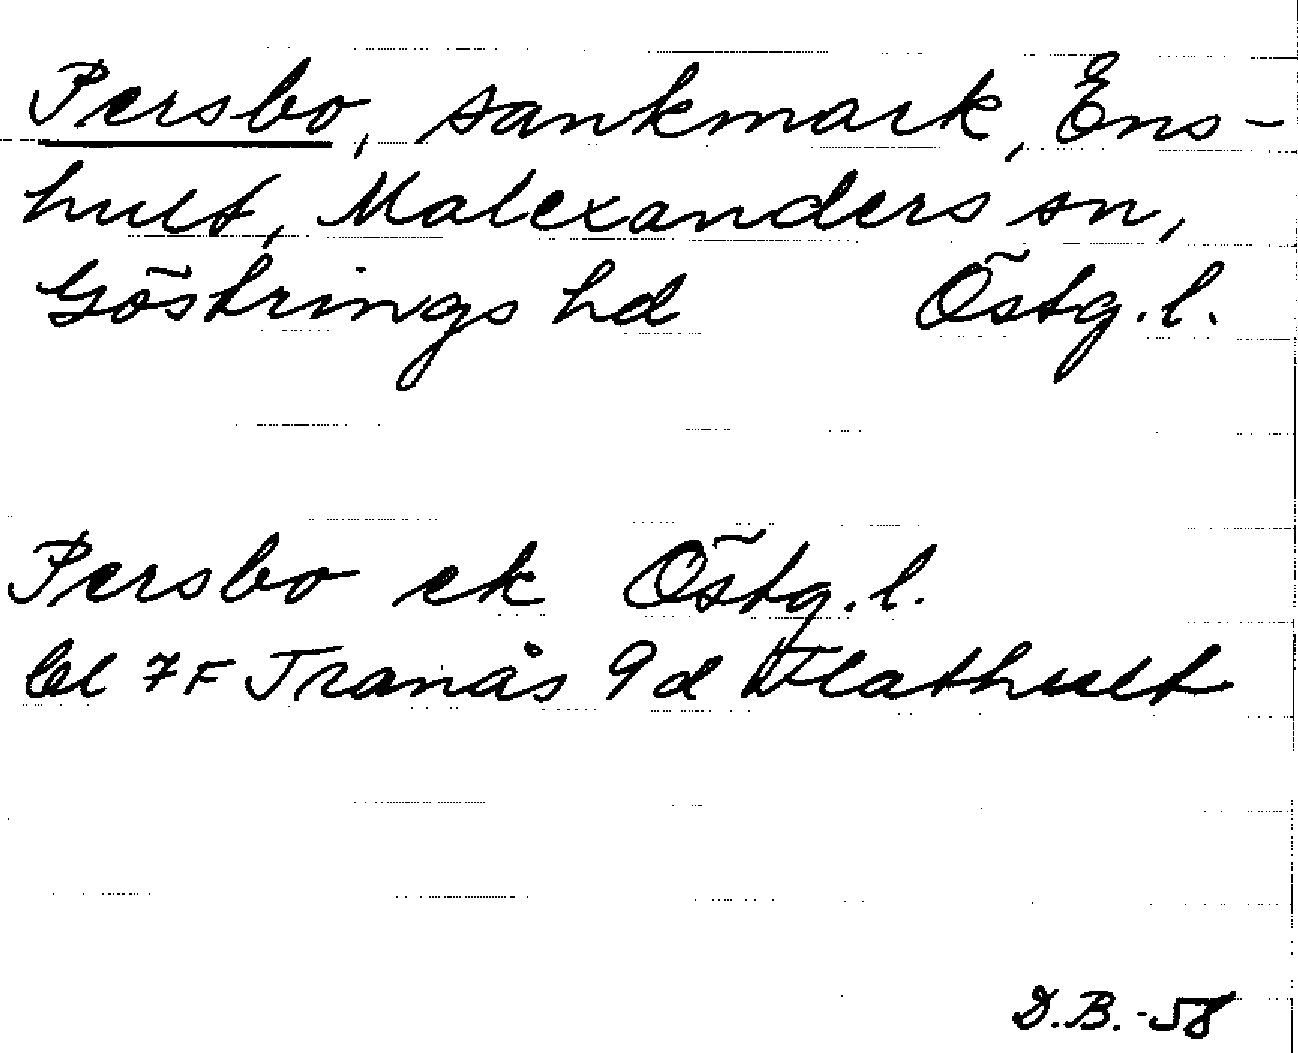 Persbo, sankmark, Ens-
hult, Malexanders sn,
Göstrings hd Östg. l.
Persbo ek Östg. l.
bl 7F Tranås 9d Flathult
D.B. -58